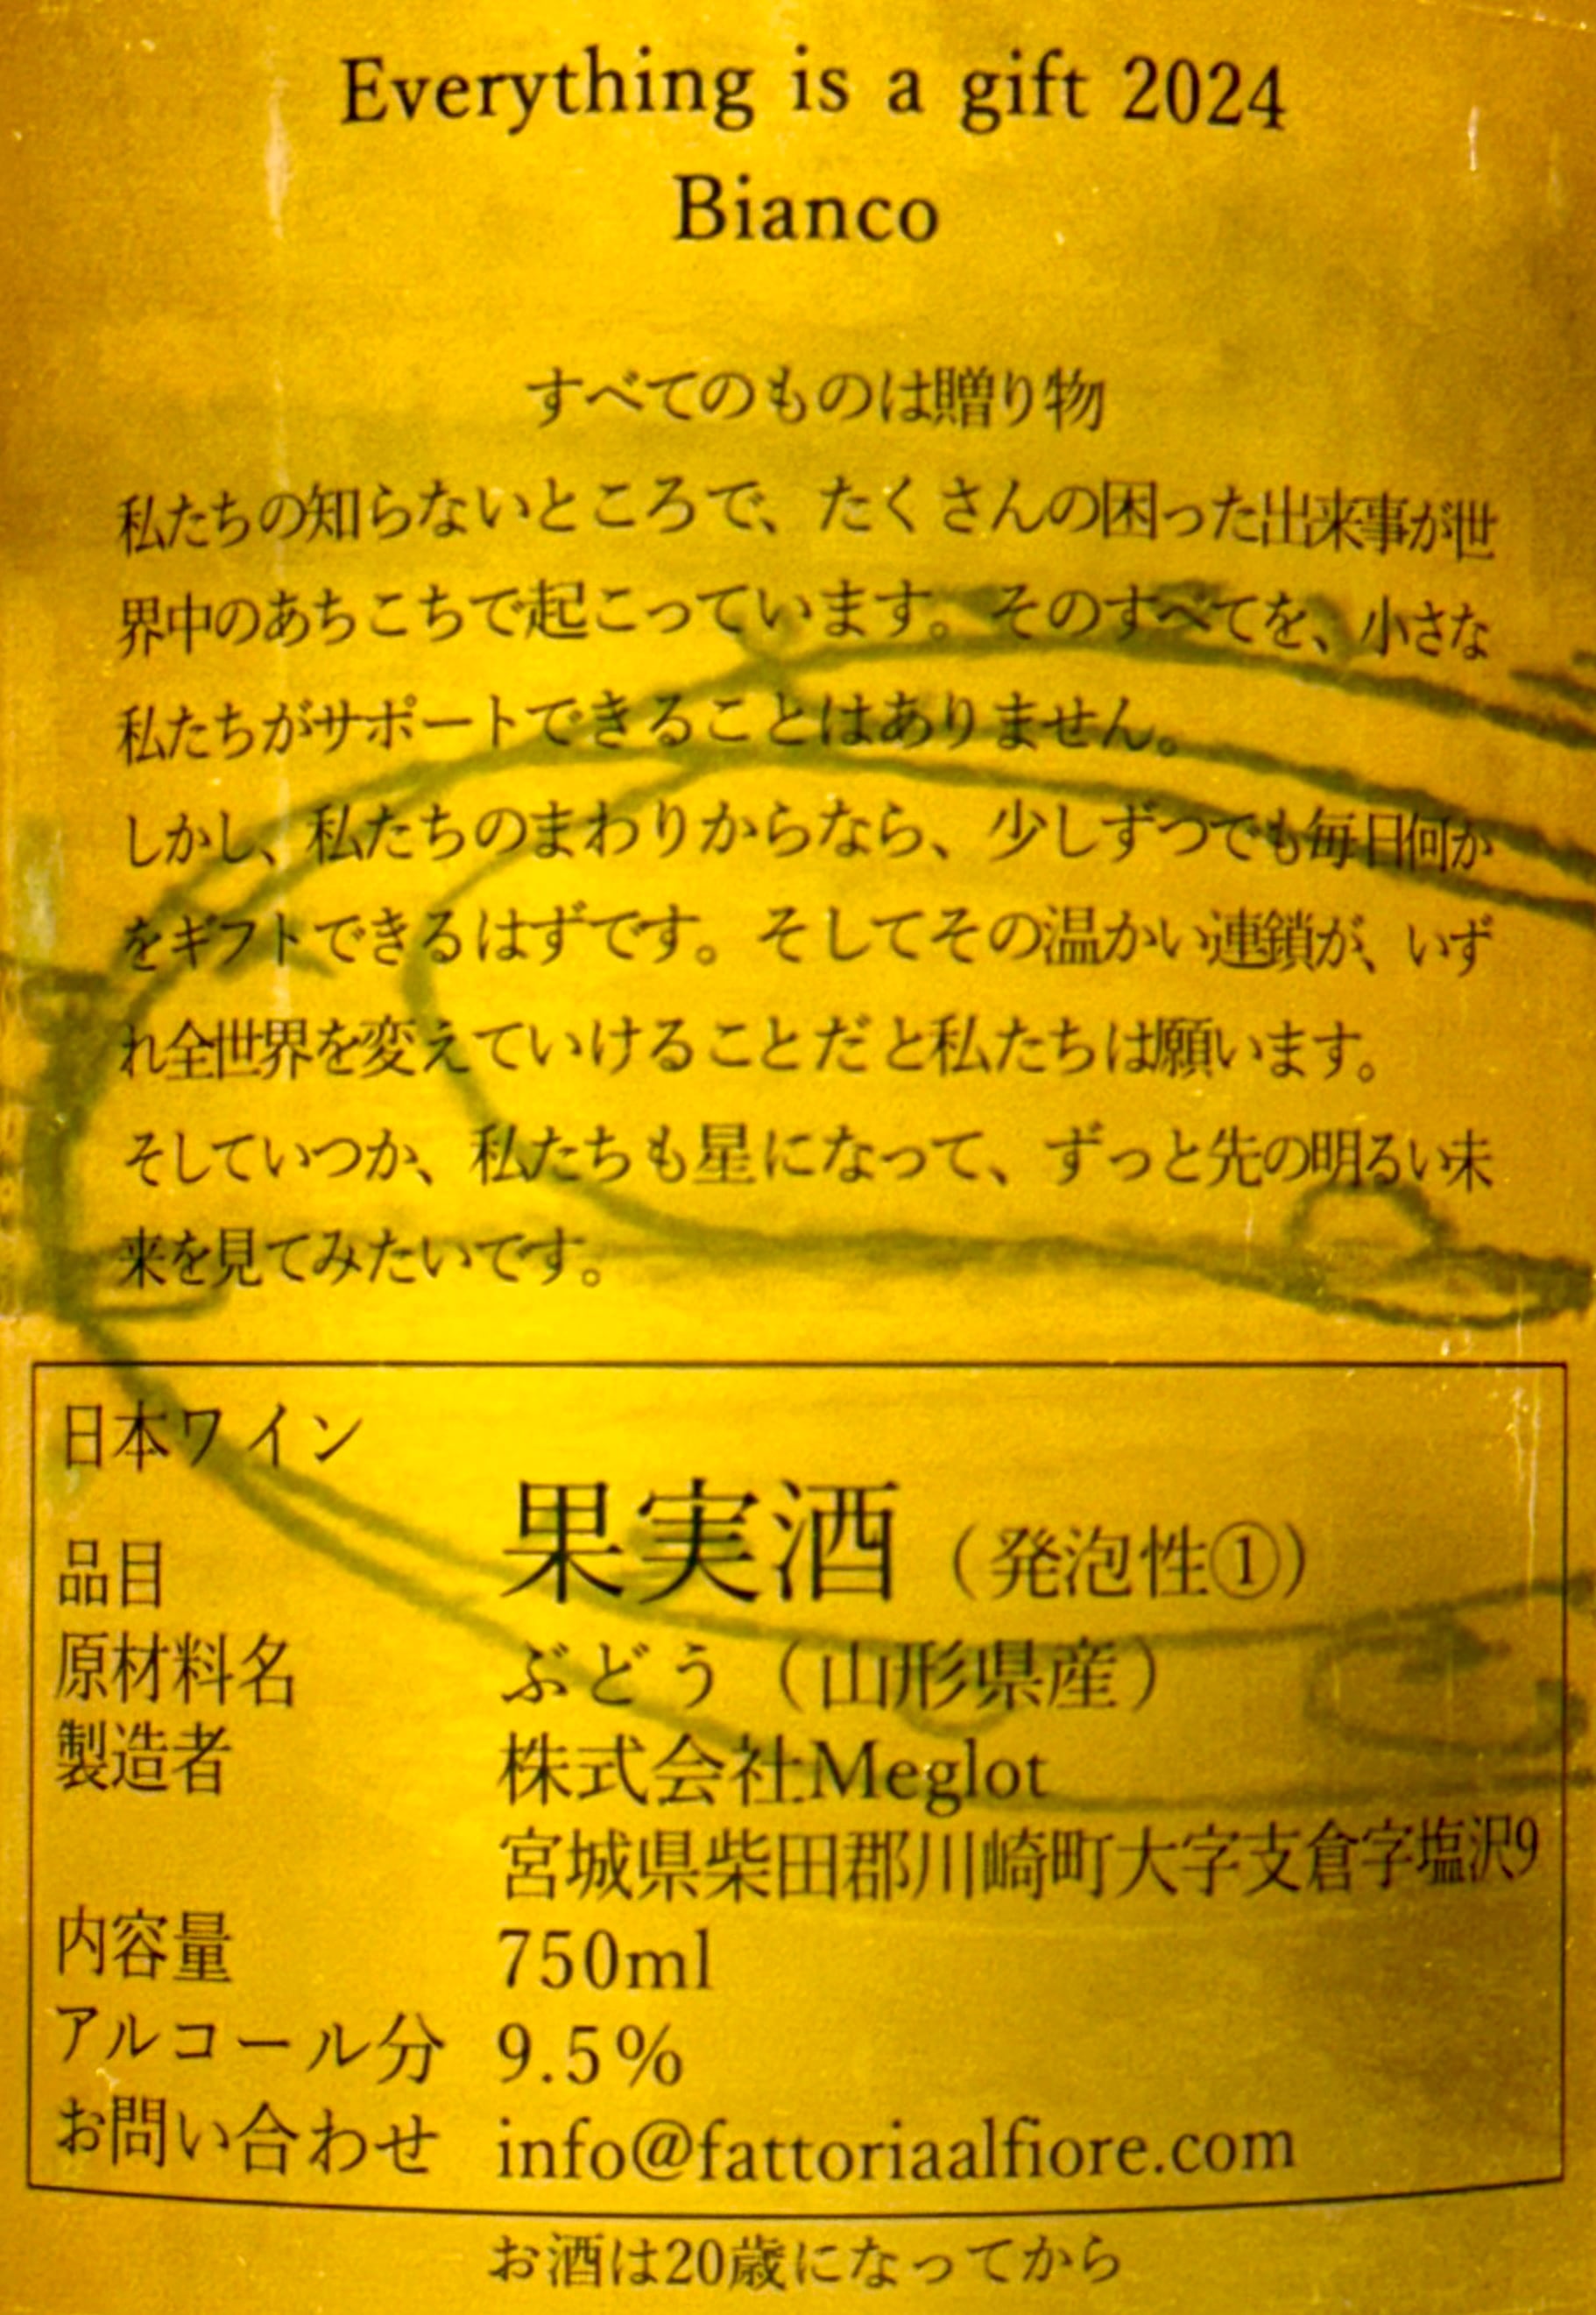 Everything is a gift 2024
Bianco
すべてのものは贈り物
私たちの知らないところで、たくさんの困った出来事が世
界中のあちこちで起こっています。そのすべてを、小さな
私たちがサポートできることはありません。
しかし、私たちのまわりからなら、少しずつでも毎日何か
をギフトできるはずです。そしてその温かい連鎖が、いず
れ全世界を変えていけることだと私たちは願います。
そしていつか、私たちも星になって、ずっと先の明るい未
来を見てみたいです。
日本ワイン
品目 果実酒（発泡性①）
原材料名 ぶどう（山形県産）
製造者 株式会社Meglot
宮城県柴田郡川崎町大字支倉字塩沢9
内容量 750ml
アルコール分 9.5%
お問い合わせ info@fattoriaalfiore.com
お酒は20歳になってから